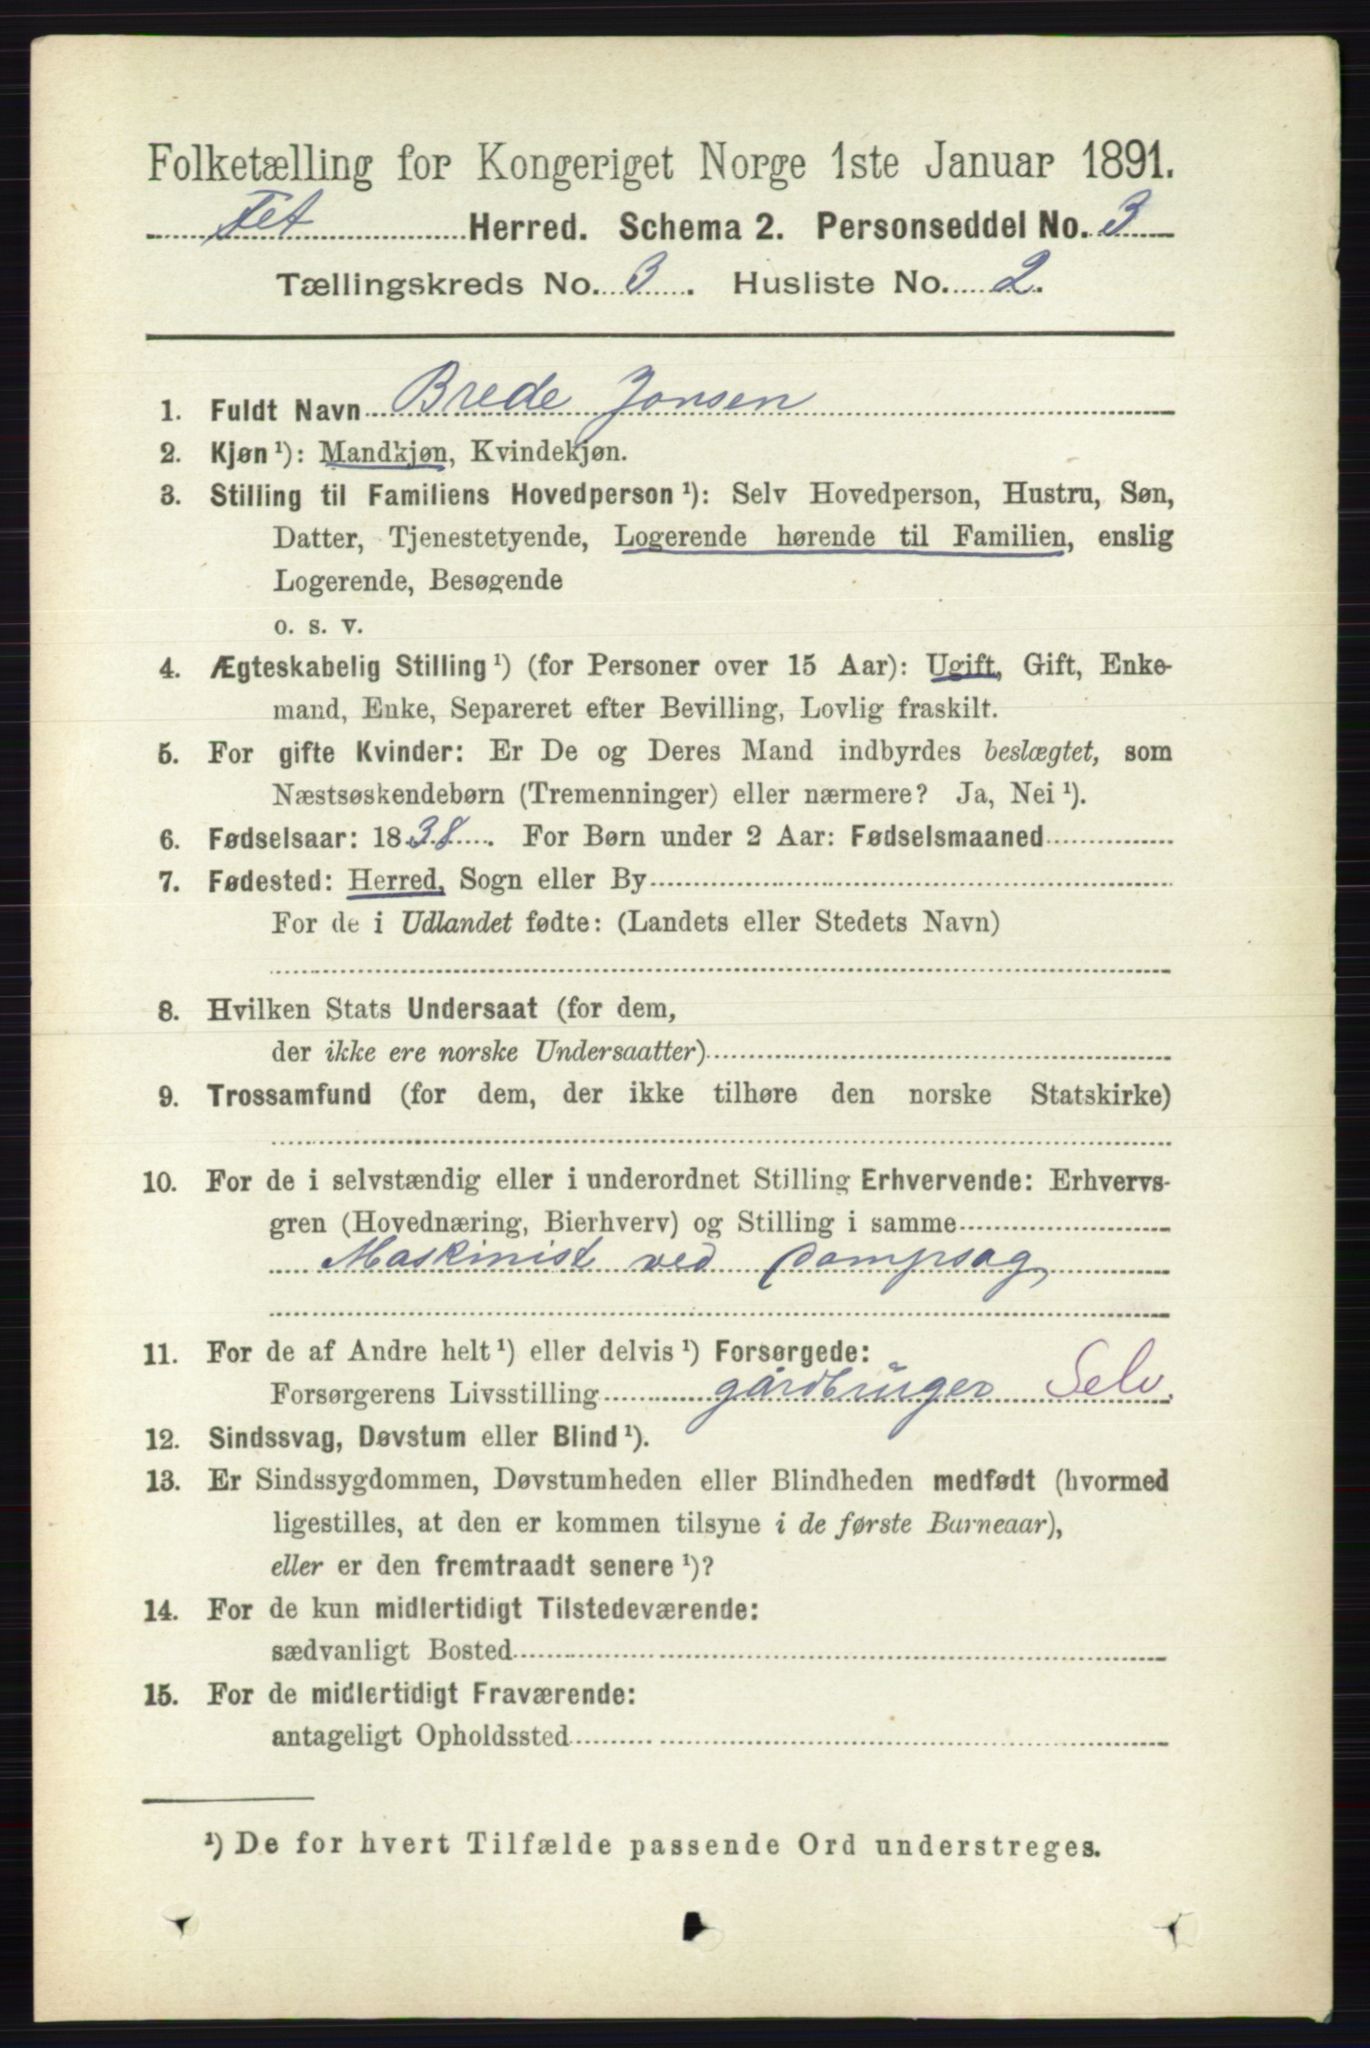 Folketælling for Kongeriget Norge 1ste Januar 1891.
Fet Herred. Schema 2. Personseddel No. 3
Tællingskreds No. 3. Husliste No. 2.
1. Fuldt Navn Brede Jonsen
2. Kjøn¹): Mandkjøn, Kvindekjøn.
3. Stilling til Familiens Hovedperson¹): Selv Hovedperson, Hustru, Søn,
Datter, Tjenestetyende, Logerende hørende til Familien, enslig
Logerende, Besøgende
o. s. v.
4. Ægteskabelig Stilling¹) (for Personer over 15 Aar): Ugift, Gift, Enke-
mand, Enke, Separeret efter Bevilling, Lovlig fraskilt.
5. For gifte Kvinder: Er De og Deres Mand indbyrdes beslægtet, som
Næstsøskendebørn (Tremenninger) eller nærmere? Ja, Nei¹).
6. Fødselsaar: 1838. For Børn under 2 Aar: Fødselsmaaned
7. Fødested: Herred, Sogn eller By
For de i Udlandet fødte: (Landets eller Stedets Navn)
8. Hvilken Stats Undersaat (for dem,
der ikke ere norske Undersaatter)
9. Trossamfund (for dem, der ikke tilhøre den norske Statskirke)
10. For de i selvstændig eller i underordnet Stilling Erhvervende: Erhvervs-
gren (Hovednæring, Bierhverv) og Stilling i samme
Maskinist ved Dampsag
11. For de af Andre helt¹) eller delvis¹) Forsørgede:
Forsørgerens Livsstilling gårdbruger Selv.
12. Sindssvag, Døvstum eller Blind¹).
13. Er Sindssygdommen, Døvstumheden eller Blindheden medfødt (hvormed
ligestilles, at den er kommen tilsyne i de første Barneaar),
eller er den fremtraadt senere¹)?
14. For de kun midlertidigt Tilstedeværende:
sædvanligt Bosted
15. For de midlertidigt Fraværende:
antageligt Opholdssted
¹) De for hvert Tilfælde passende Ord understreges.